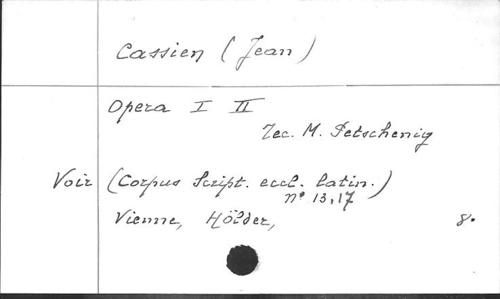 Cassien (Jean)
Opera I II
rec. M. Petschenig
Voir (Corpus Script. eccl. latin.)
n° 13,17
Vienne, Hölder, 8.